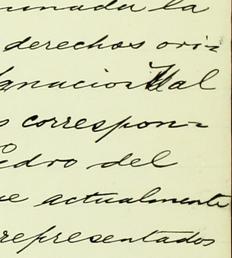 la
derechos ori=
Ignacio
correspon=
Pedro del
actualmente
representados